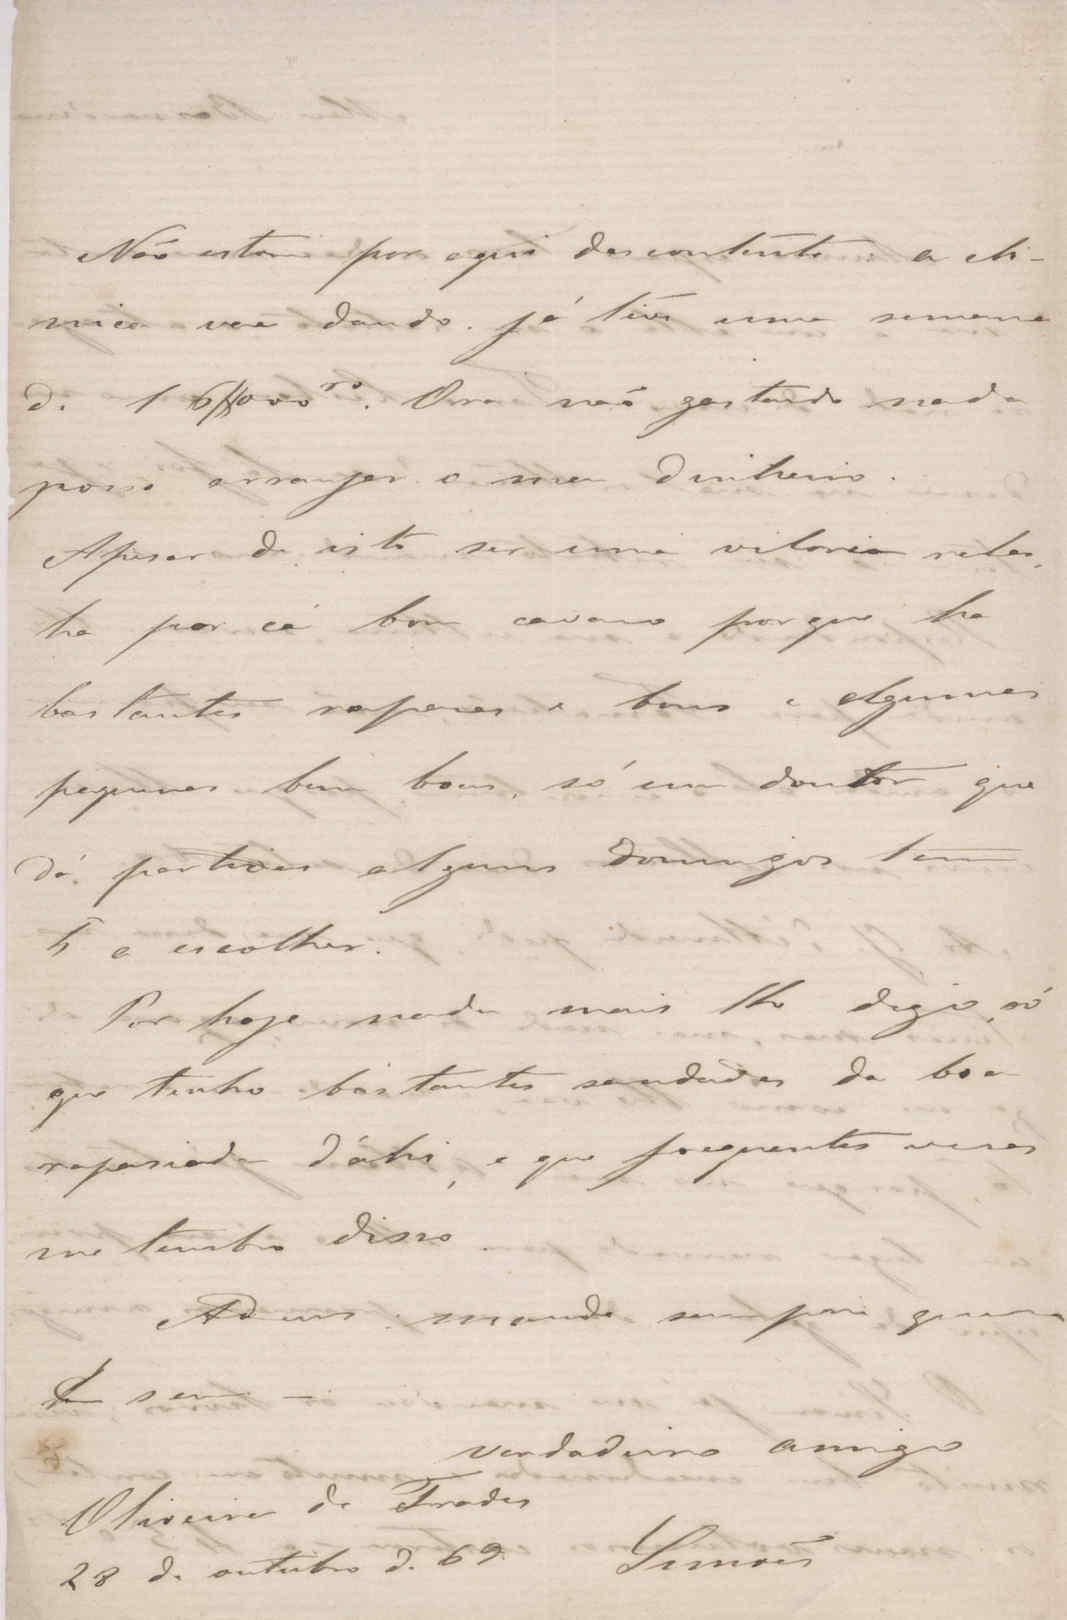 Não estou por aqui descontente: a cli-
nica vae dando. Já tive uma semana
de 16$000 rs. Ora não gastando nada
posso arranjar o meu dinheiro.
Apesar de isto ser uma reles,
ha por cá bom cavaco porque ha
bastantes rapazes e bons e algumas
pequenas bem boas, só um doutor que
dá partidas alguns domingos tem
5 a escolher.
Por hoje nada mais lhe digo, só
que tenho bastantes saudades da boa
rapasiada d'ahi, e que frequentes vezes
me lembro disso
Adeus: mande sempre quem
é seu —
verdadeiro amigo
Oliveira de Frades
28 de outubro de 69 Simões